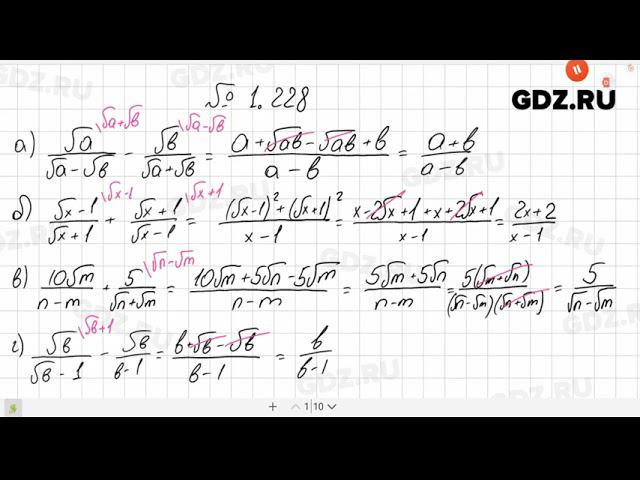 GDZ.RU
№ 1.228
а) √a/(√a-√b) \√a+√b - √b/(√a+√b) \√a-√b = (a+√ab-√ab+b)/(a-b) = (a+b)/(a-b)
б) (√x-1)/(√x+1) \√x-1 + (√x+1)/(√x-1) \√x+1 = ((√x-1)²+(√x+1)²)/(x-1) = (x-2√x+1+x+2√x+1)/(x-1) = (2x+2)/(x-1)
в) 10√m/(n-m) + 5/(√n+√m) \√n-√m = (10√m+5√n-5√m)/(n-m) = (5√m+5√n)/(n-m) = 5(√m+√n)/((√n-√m)(√n+√m)) = 5/(√n-√m)
г) √b/(√b-1) \√b+1 - √b/(b-1) = (b+√b-√b)/(b-1) = b/(b-1)
+ 1|10